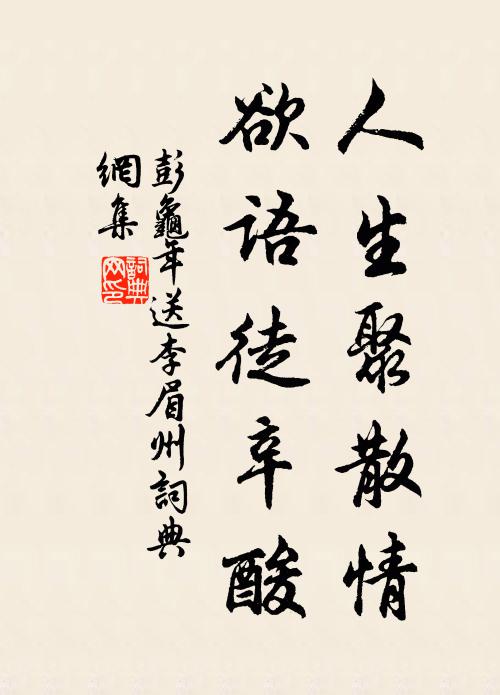 人生聚散情
欲語徒辛酸
彭龜年送李眉州詞典
網集
詞典
网印